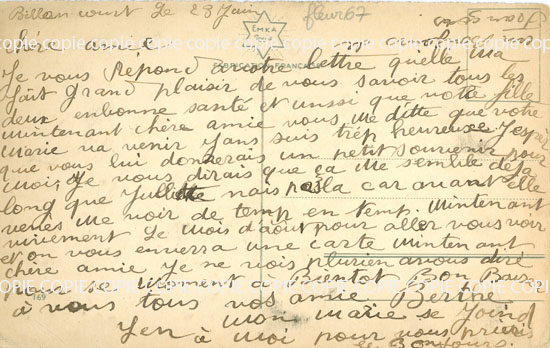 Billancourt Le 23 Juin
fleur67
EMKA
chère amie
FABRICATION FRANÇAISE
Je vous Répond a votre lettre quelle ma
fait grand plaisir de vous savoir tous les
deux enbonne santé et aussi que votre fille
mintenant chère amie vous me ditte que votre
Marie va venir Jans suis trép heureuse J'esper
que vous lui donnerais un petit souvenir pour
moi, Je vous dirais que ça me semble déja
long que Juliette nais pasla car avant elle
venes me voir de temp en temp. Mintenant
vivement le mois d'août pour aller vous voir
et on vous enverra une carte mintenant
chère amie Je ne vois plurien avous dire
pour le moment à Bientot Bon Bais
à vous tous vos amie Berthe
169
Mon Marie se Joind
à Moi pour vous
les Bonjours.
copie copie copie copie copie copie